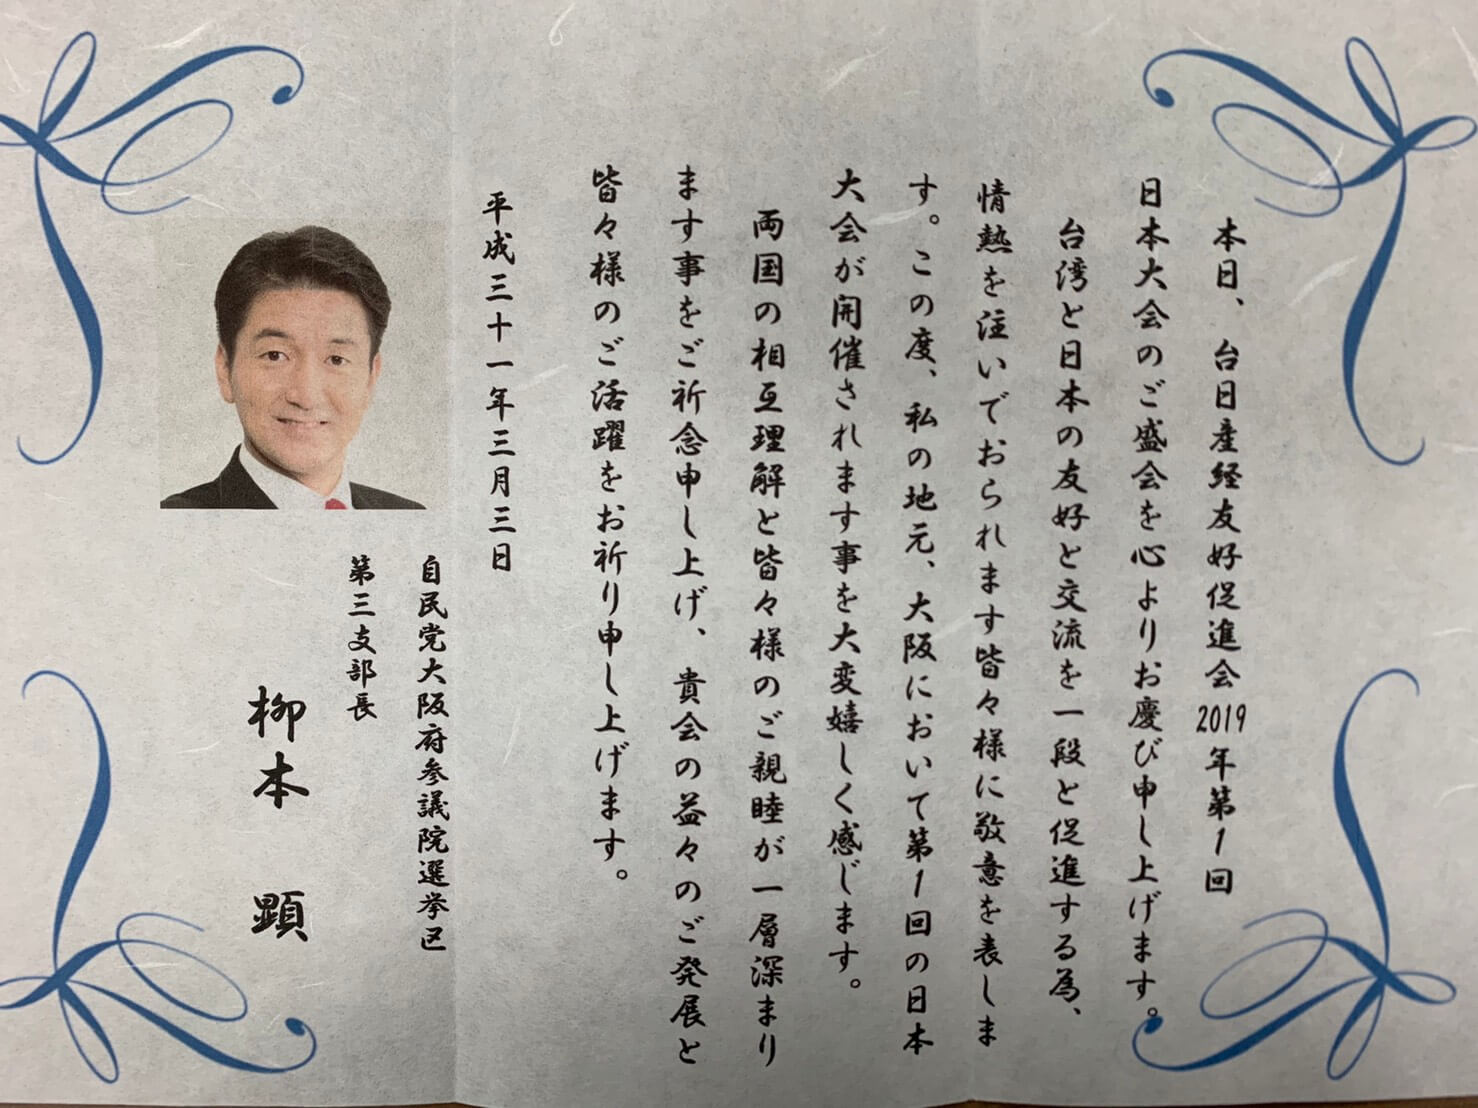 本日、台日産経友好促進会2019年第1回
日本大会のご盛会を心よりお慶び申し上げます。
台湾と日本の友好と交流を一段と促進する為、
情熱を注いでおられます皆々様に敬意を表しま
す。この度、私の地元、大阪において第1回の日本
大会が開催されます事を大変嬉しく感じます。
両国の相互理解と皆々様のご親睦が一層深まり
ます事をご祈念申し上げ、貴会の益々のご発展と
皆々様のご活躍をお祈り申し上げます。
平成三十一年三月三日
自民党大阪府参議院選挙区
第三支部長
柳本 顕